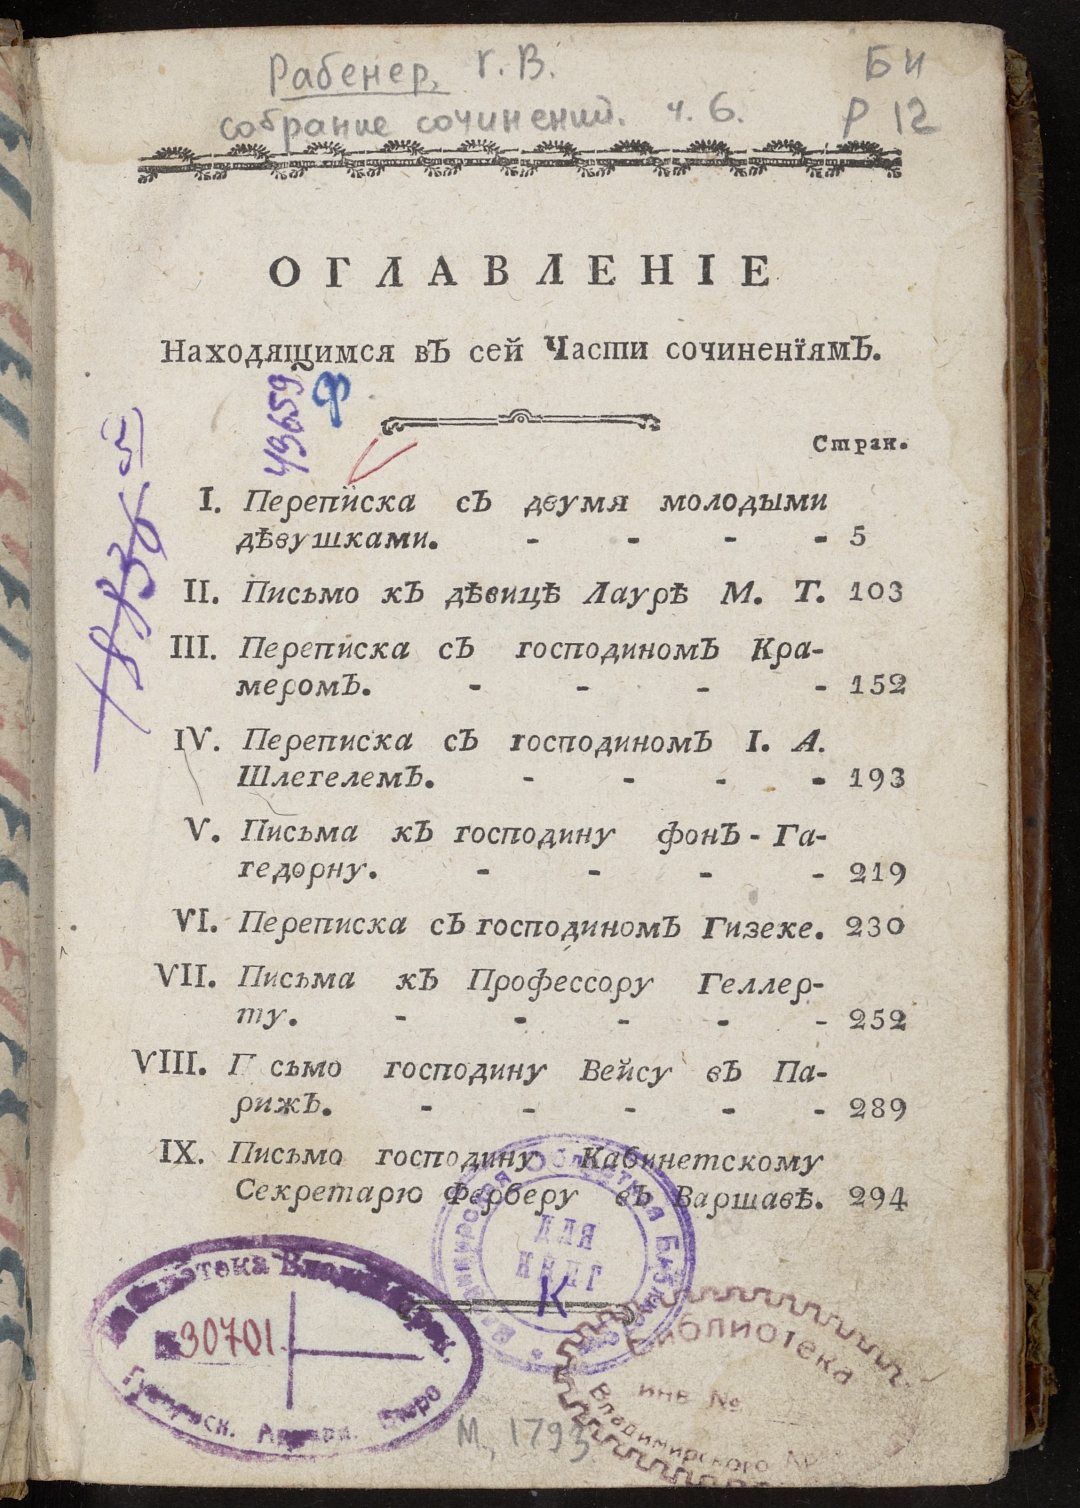 Рабенер, Г. В.
БИ
собрание сочинений. ч. 6.
Р 12
ОГЛАВЛЕНІЕ
Находящимся въ сей Части сочиненїямъ.
49659
Ф
Стран.
I. Переписка съ двумя молодыми
дѣвушками. - - - - 5
II. Письмо къ дѣвицѣ Лаурѣ М. Т. 103
III. Переписка съ господиномъ Кра-
меромъ. - - - - 152
IV. Переписка съ господиномъ I. А.
Шлегелемъ. - - - - 193
V. Письма къ господину фонъ-Га-
гедорну. - - - - 219
VI. Переписка съ господиномъ Гизеке. 230
VII. Письма къ Профессору Геллер-
ту. - - - - - 252
VIII. П сьмо господину Вейсу въ Па-
рижъ. - - - - - 289
IX. Письмо господину Кабинетскому
Секретарю Ферберу въ Варшавѣ. 294
Владимирская Областная
ДЛЯ
КНИГ
К
Библиотека
30701.
Библиотека
инв №
Владимирского
М, 1793